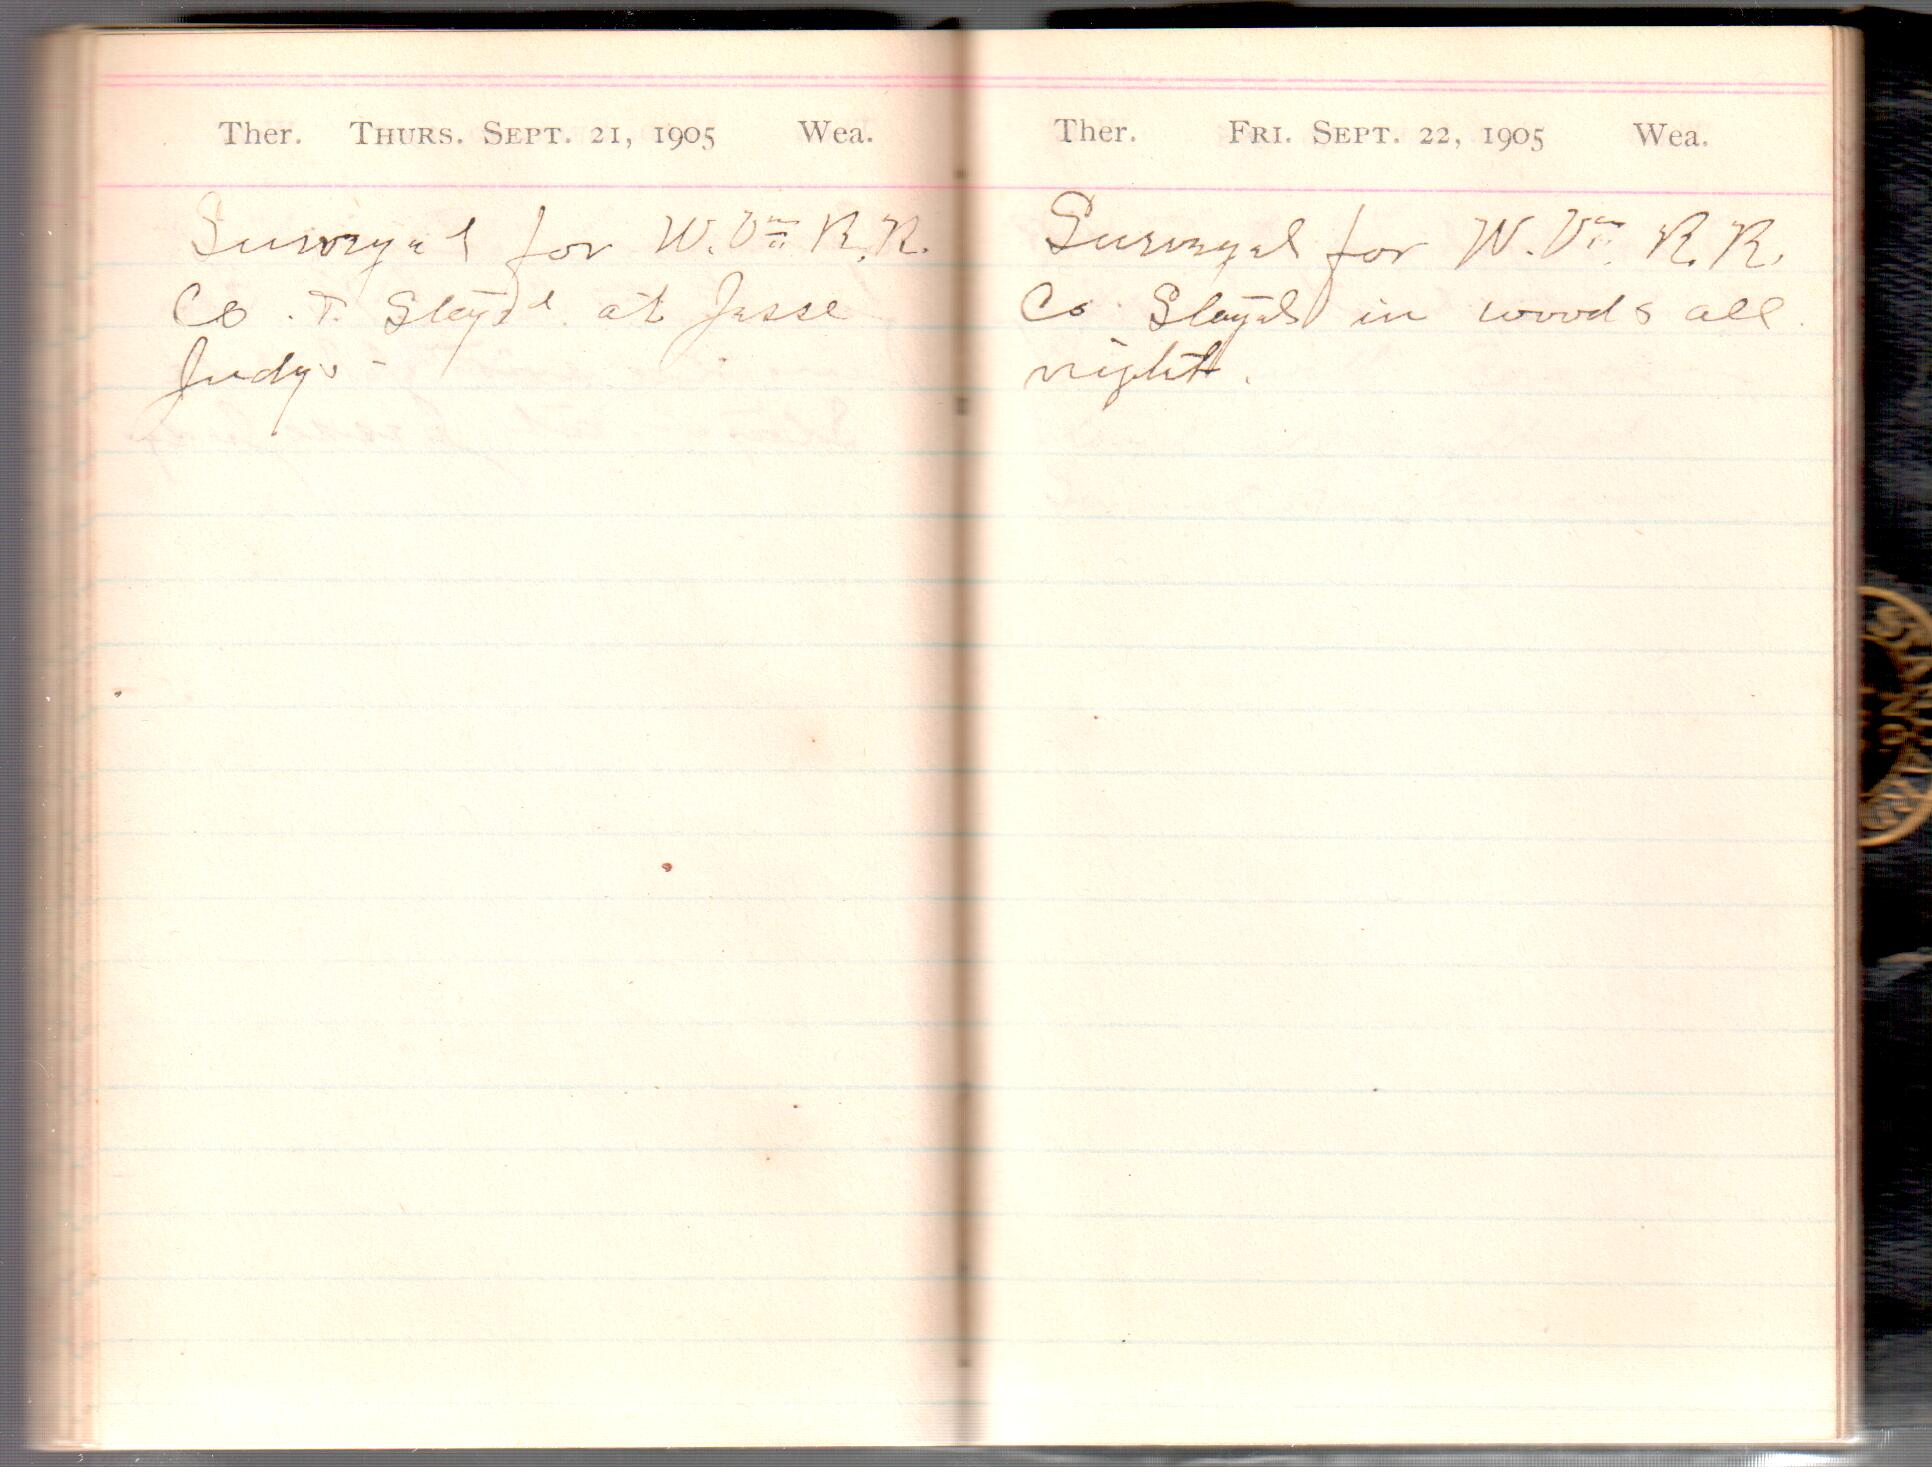 Ther. THURS. SEPT. 21, 1905 Wea.
Surveyed for W. Va R.R.
Co. & Stayed at Jesse
Judys -
Ther. FRI. SEPT. 22, 1905 Wea.
Surveyed for W. Va. R. R.
Co. Stayed in woods all
night.
STANDARD